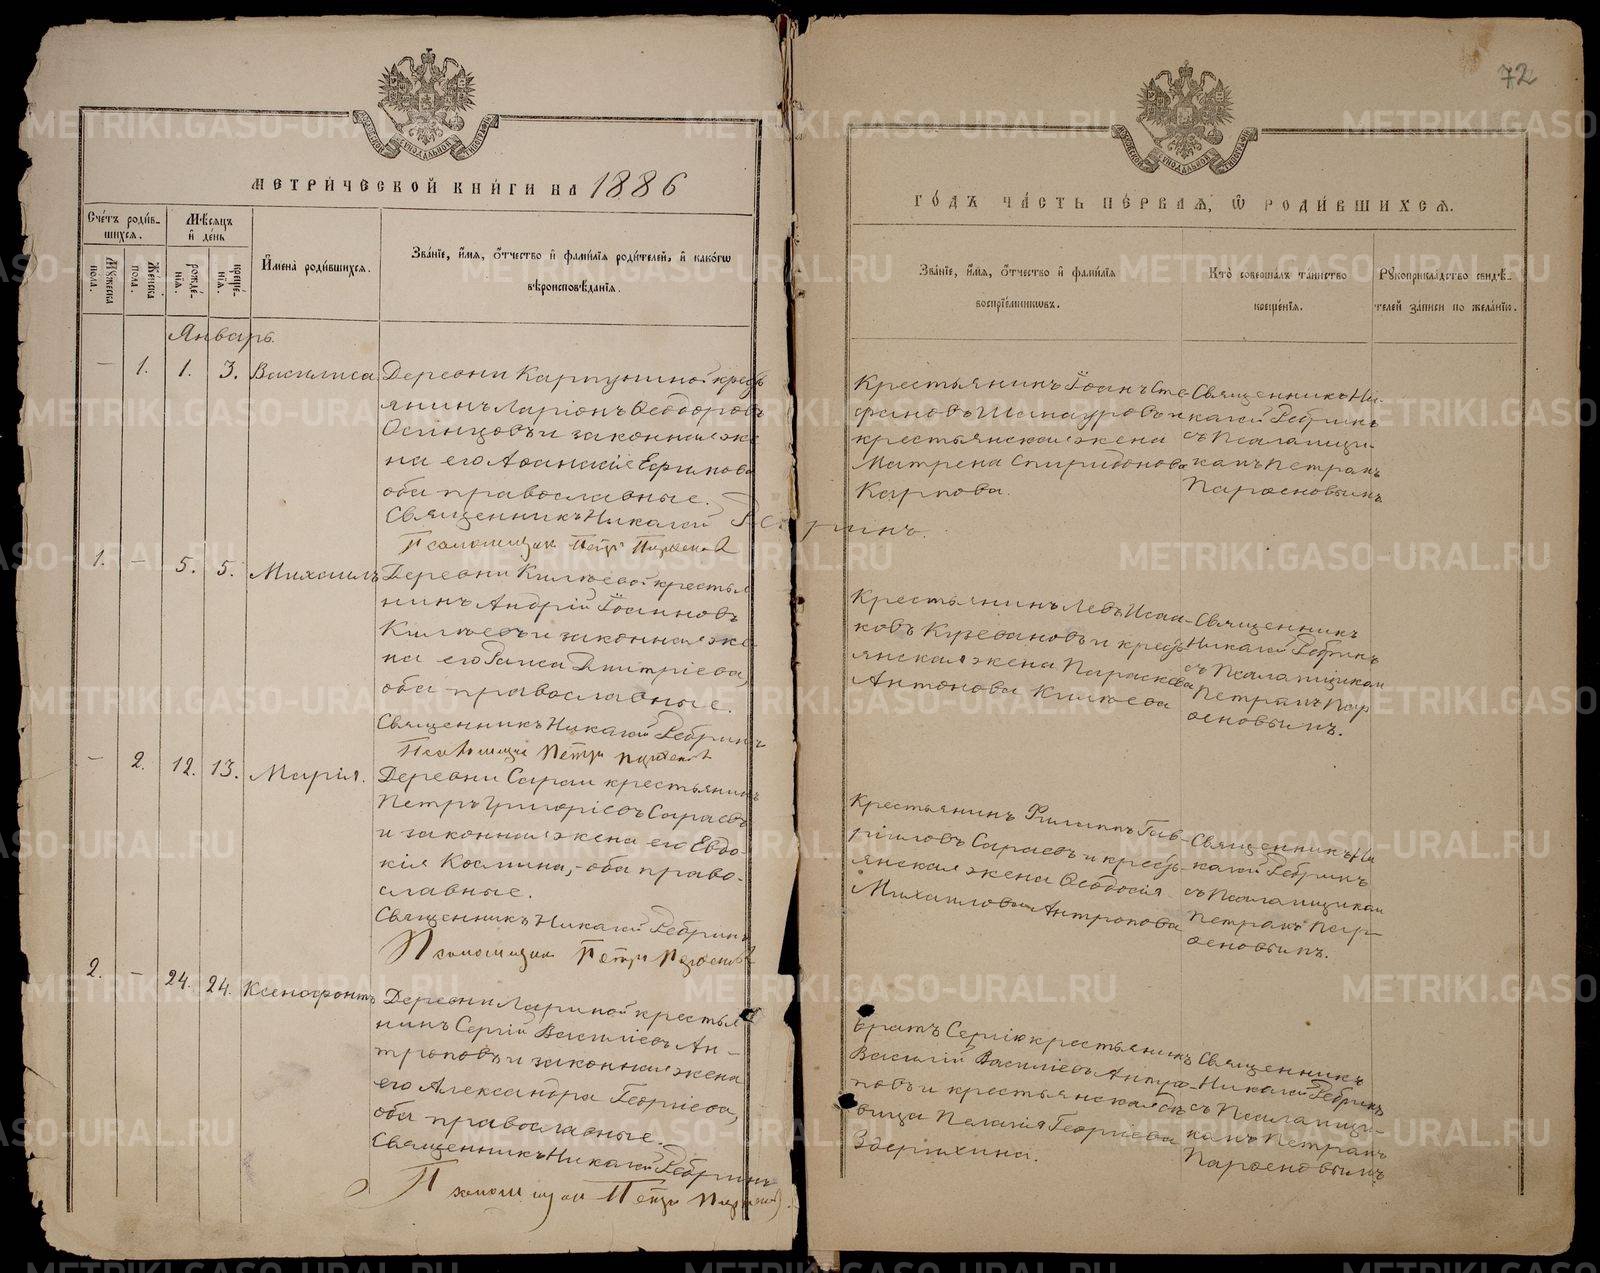 72
МЕТРИ́ЧЕСКОЙ КНИ́ГИ НА 1886
ГО́ДЪ ЧА́СТЬ ПЕ́РВАѦ, Ѡ РОДИ́ВШИХСѦ.
Сче́тъ роди́в-
шихсѧ.
Мꙋ́жеска пола.
Же́нска пола.
Мѣ́сѧцъ
и҆ де́нь
рожде́-
нїѧ.
креще́-
нїѧ.
И҆мена̀ роди́вшихсѧ.
Зва́нїе, и҆́мѧ, ѻ҆́тчество и҆ фами́лїѧ роди́телей, и҆ како́гѡ
вѣроисповѣ́данїѧ.
Зва́нїе, и҆́мѧ, ѻ҆́тчество и҆ фами́лїѧ
воспрїе́мникѡвъ.
Кто̀ соверша́лъ та́инство
креще́нїѧ.
Рꙋкоприкла́дство свидѣ́-
телей за́писи по жела́нїю.
Январь.
— 1. 1. 3. Василиса
Деревни Карпушиной кресть
янинъ Ларіонъ Ѳеодоровъ
Осинцовъ и законная же
на его Аѳанасія Ефимова
оба православные.
Священникъ Никаній Ребринъ.
Псаломщикъ Петръ Парѳеновъ
Крестьянинъ Іоанъ Сте
фановъ Шамауровъ и
крестьянская жена
Матрена Спиридонова
Карпова.
Священникъ Ни-
каній Ребринъ
съ Псаломщи-
комъ Петромъ
Парѳеновымъ
1. — 5. 5. Михаилъ
Деревни Килѣевой крестья
нинъ Андрій Іоанновъ
Килѣевъ и законная же
на его Раиса Дмитріева,
оба православные.
Священникъ Никаній Ребринъ
Псаломщикъ Петръ Парѳеновъ
Крестьянинъ Левъ Исаа-
ковъ Кузевановъ и кресть
янская жена Параскева
Антонова Килѣева
Священникъ
Никаній Ребринъ
съ Псаломщикомъ
Петромъ Пар
ѳеновымъ.
— 2. 12. 13. Марія.
Деревни Сараи крестьянинъ
Петръ Григоріевъ Сараевъ
и законная жена его Евдо-
кія Космина,- оба право-
славные.
Священникъ Никаній Ребринъ
Псаломщикъ Петръ Парѳеновъ
Крестьянинъ Филиппъ Гав-
ріиловъ Сараевъ и кресть-
янская жена Ѳеодосія
Михаилова Антропова
Священникъ Ни
каній Ребринъ
съ Псаломщикомъ
Петромъ Пар-
ѳеновымъ.
2. — 24. 24. Ксенофонтъ
Деревни Лариной крестья
нинъ Сергій Василіевъ Ан-
троповъ и законная жена
его Александра Георгіева,
оба православные.
Священникъ Никаній Ребринъ
Псаломщикъ Петръ Парѳеновъ
Братъ Сергію крестьянинъ
Василій Василіевъ Антро-
повъ и крестьянская дѣ
вица Пелагія Георгіева
Здерихина.
Священникъ
Никаній Ребринъ
съ Псаломщи-
комъ Петромъ
Парѳеновымъ
METRIKI.GASO-URAL.RU